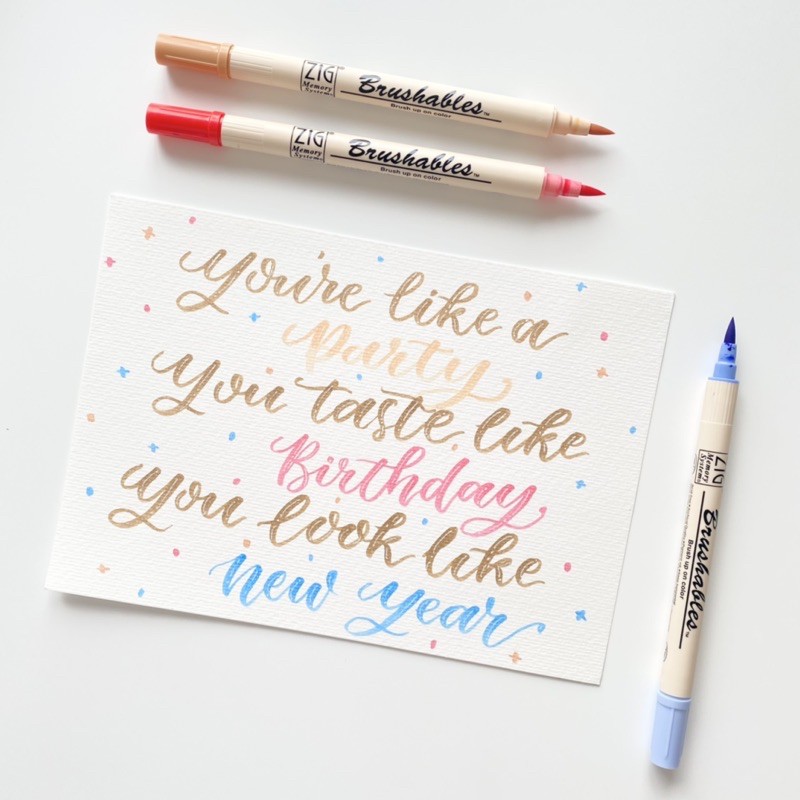 ZIG
Memory
System
Brushables™
Brush up on color
ZIG
Memory
System
Brushables™
Brush up on color
you're like a
party
you taste like
Birthday
you look like
new year
ZIG
Memory
System
Brushables™
Brush up on color